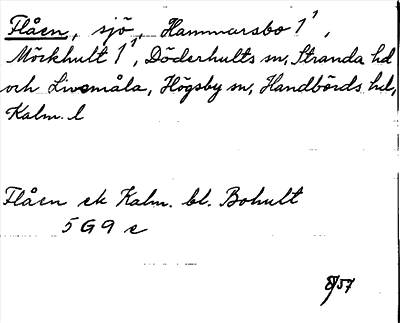 Flåen, sjö, Hammarsbo 1¹,
Möckhult 1¹, Döderhults sn, Stranda hd
och Livsmåla, Högsby sn, Handbörds hd,
Kalm. l
Flåen ek Kalm. bl. Bohult
5 G 9 e
/57